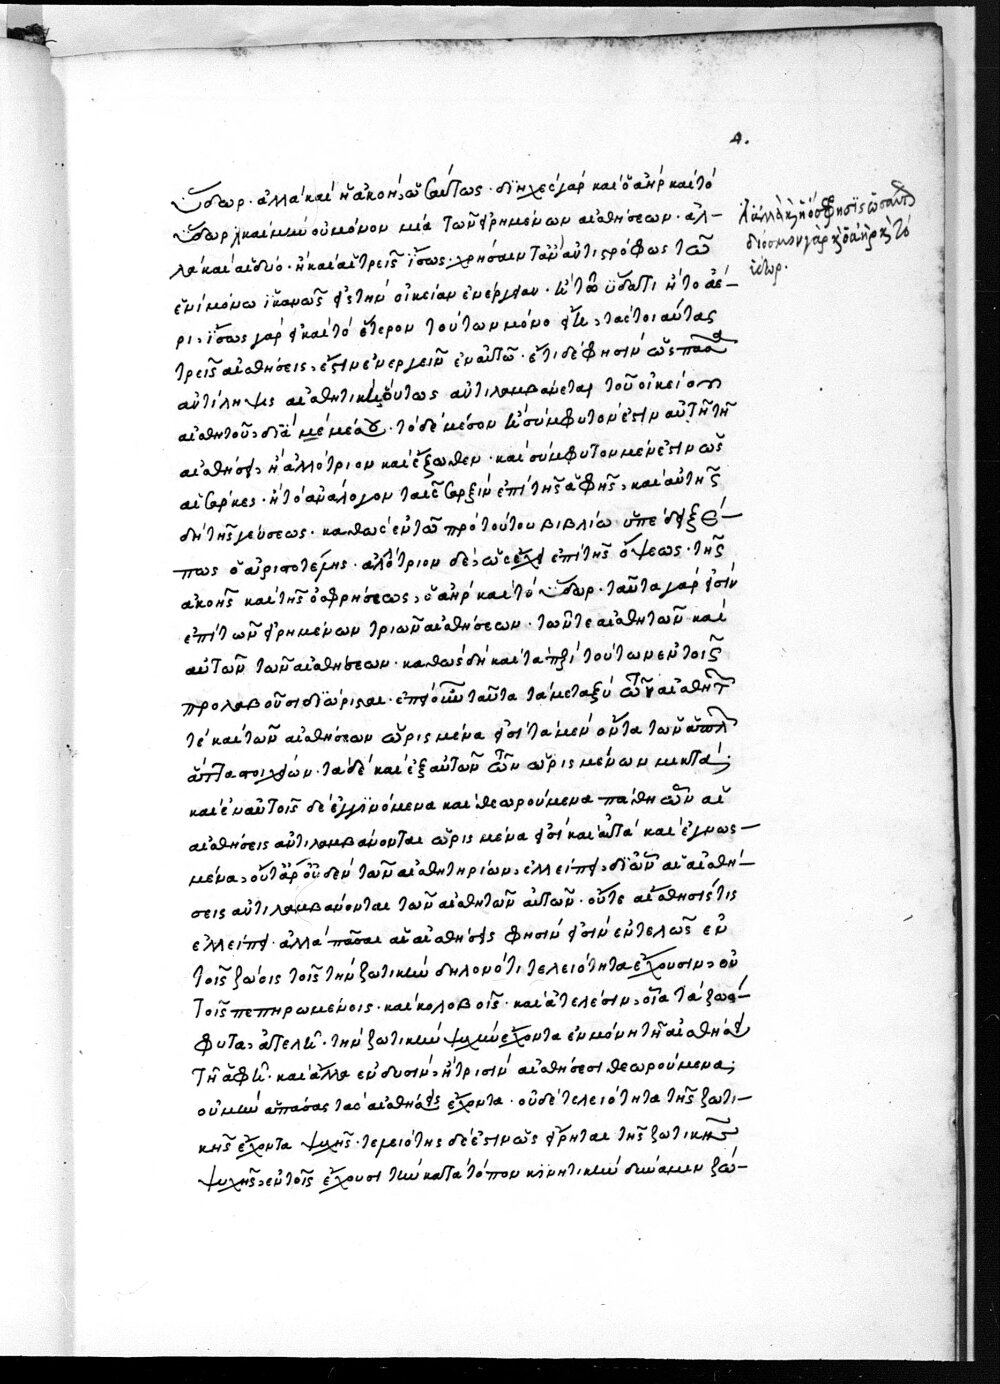 4.
ὕδωρ· ἀλλὰ καὶ ἡ ἀκοὴ, ὡσαύτως· διηχὲς γὰρ καὶ ὁ ἀὴρ καὶ τὸ
ὕδωρ καὶ μὴν οὐ μόνον μία τῶν εἰρημένων αἰσθήσεων· ἀλ–
λὰ καὶ αἱ δύο· ἢ καὶ αἱ τρεῖς ἴσως· χρήσαιντ' ἂν ἀντιστρόφως τῶ
ἑνὶ μόνω ἱκανῶς εἰς τὴν οἰκείαν ἐνέργειαν· ἢ τῶ ὕδατι ἢ τῶ ἀέ–
ρι, ἴσως γὰρ εἰ καὶ τὸ ἕτερον τούτων μόνον εἴη, τάς τοι αὐτὰς
τρεῖς αἰσθήσεις, ἔστιν ἐνεργεῖν ἐν αὐτῶ· ἔτι δέ φησιν ὡς πᾶσα
ἀντίληψις αἰσθητικὴ οὕτως ἀντιλαμβάνεται τοῦ οἰκείου
αἰσθητοῦ, διὰ μέσου· τὸ δὲ μέσον ἢ σύμφυτόν ἐστιν αὐτῆ τῆ
αἰσθήσει, ἢ ἀλλότριον καὶ ἔξωθεν· καὶ σύμφυτον μέν ἐστιν ὡς
αἱ σάρκες· ἢ τὸ ἀνάλογον ταῖς σαρξὶν ἐπὶ τῆς ἁφῆς, καὶ αὐτῆς
δὴ τῆς γεύσεως· καθὼς ἐν τῶ πρὸ τούτου βιβλίω ὑπέδειξέ
πως ὁ ἀριστοτέλης· ἀλλότριον δὲ, ὡς ἔχει ἐπὶ τῆς ὄψεως· τῆς
ἀκοῆς καὶ τῆς ὀσφρήσεως, ὁ ἀὴρ καὶ τὸ ὕδωρ· ταῦτα γάρ εἰσιν
ἐπὶ τῶν εἰρημένων τριῶν αἰσθήσεων· τῶν τε αἰσθητῶν καὶ
αὐτῶν τῶν αἰσθήσεων· καθὼς δὴ καὶ τὰ περὶ τούτων ἐν τοῖς
προλαβοῦσι διώρισται· ἐπεὶ οὖν ταῦτα τὰ μεταξὺ τῶν αἰσθητῶν
τὲ καὶ τῶν αἰσθήσεων ὡρισμένα εἰσὶ τὰ μὲν ὄντα τῶν ἁπλῶν
ἅττα στοιχείων· τὰ δὲ καὶ ἐξ αὐτῶν τῶν ὡρισμένων μικτά,
καὶ ἐν αὐτοῖς δὲ ἐγγινόμενα καὶ θεωρούμενα πάθη ὧν αἱ
αἰσθήσεις ἀντιλαμβάνονται ὡρισμένα εἰσὶ καὶ αὐτὰ καὶ ἐγνωσ–
μένα, οὔτ' ἄρ' οὐδὲν τῶν αἰσθητηρίων, ἐλλείπει, δι' ὧν αἱ αἰσθή–
σεις ἀντιλαμβάνονται τῶν αἰσθητῶν αὐτῶν· οὔτε αἴσθησίς τις
ἐλλείπει· ἀλλὰ πᾶσαι αἱ αἰσθήσεις φησὶν εἰσὶν ἐντελῶς ἐν
τοῖς ζώοις τοῖς τὴν ζωτικὴν δηλονότι τελειότητα ἔχουσιν, οὐ
τοῖς πεπηρωμένοις· καὶ κολοβοῖς· καὶ ἀτελέσιν, οἷα τὰ ζωό–
φυτα, ἀτελῆ· τὴν ζωτικὴν ψυχὴν ἔχοντα ἐν μόνη τῆ αἰσθήσει
τῆ ἁφῆ· καὶ ἄλλα ἐν δυσὶν, ἢ τρισὶν αἰσθήσεσι θεωρούμενα,
οὐ μὴν ἁπάσας τὰς αἰσθήσεις ἔχοντα· οὐδὲ τελειότητα τῆς ζωτι–
κῆς ἔχοντα ψυχῆς· τελειότης δέ ἐστιν ὡς εἴρηται τῆς ζωτικῆς
ψυχῆς, ἐν τοῖς ἔχουσι τὴν κατὰ τόπον κινητικὴν δύναμιν ζώ–
ἀλλὰ καὶ ἡ ὄσφρησις ὡσαύτως
δίοσμον γὰρ καὶ ὁ ἀὴρ καὶ τὸ
ὕδωρ.